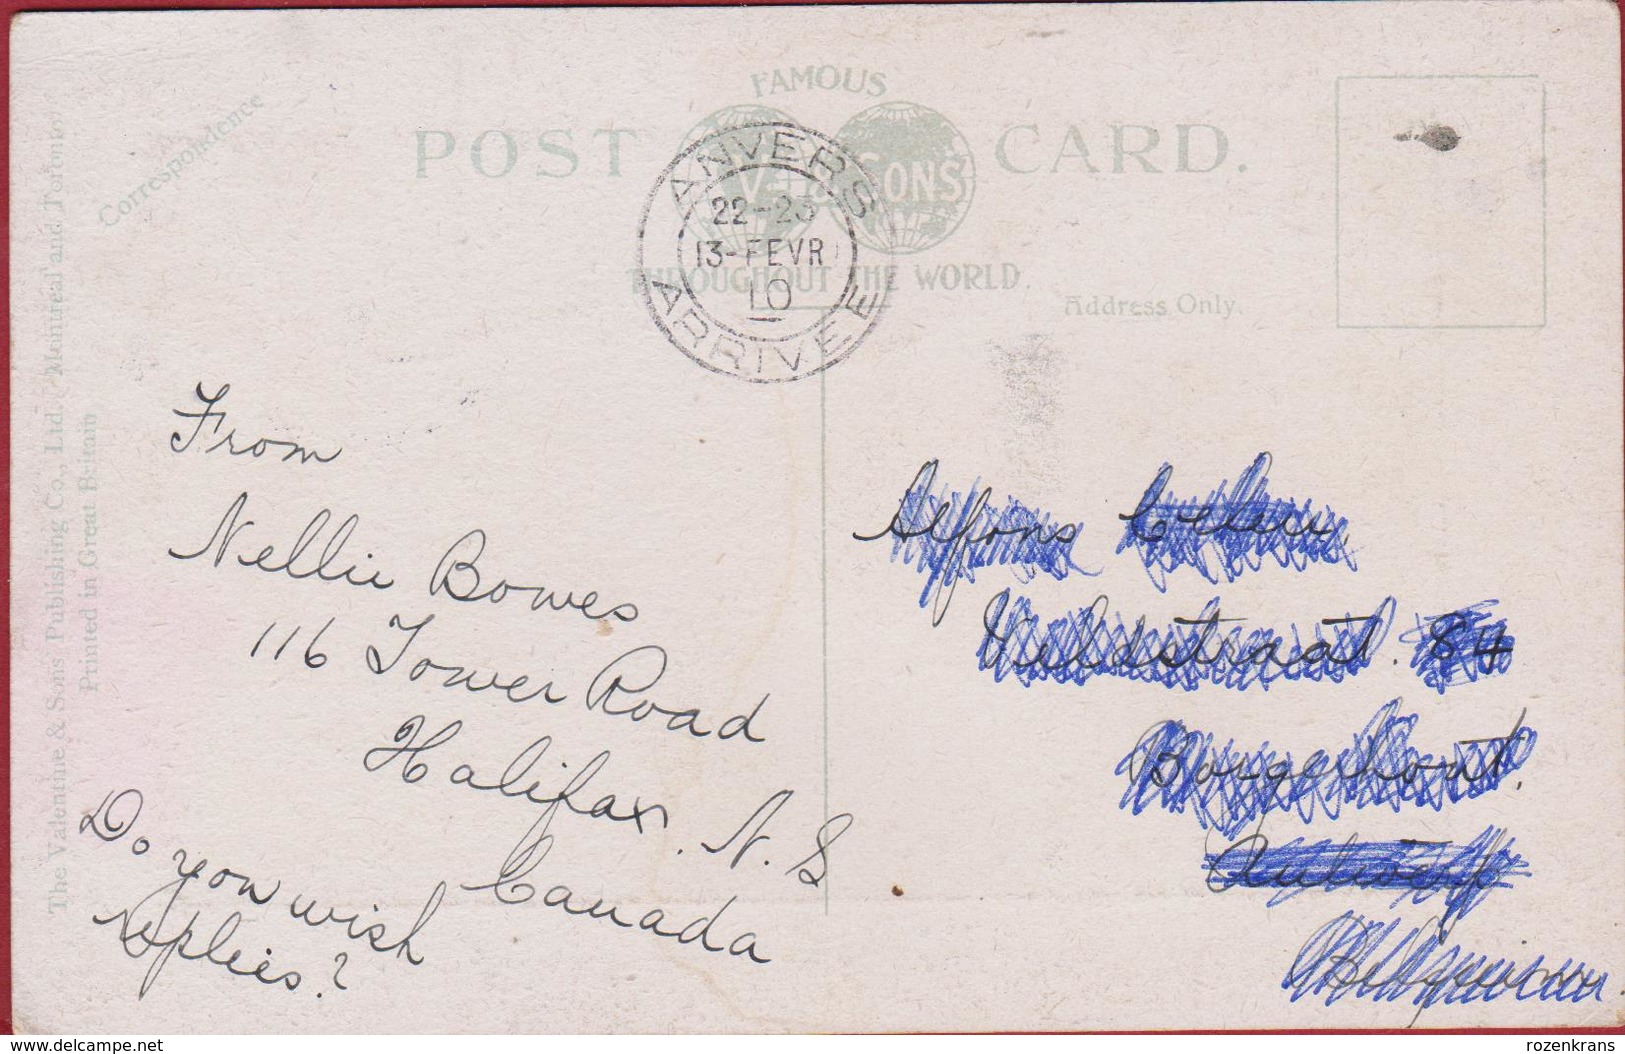 FAMOUS
POST CARD.
SONS
THROUGHOUT THE WORLD.
Correspondence
Address Only.
The Valentine & Sons Publishing Co., Ltd. Montreal and Toronto.
Printed in Great Britain
ANVERS
22-23
13-FEVR
10
ARRIVEE
From
Nellie Bowes
116 Tower Road
Halifax. N.S
Canada
Do you wish
replies?
Alfons
Veldstraat. 84
Borgerhout.
Antwerp
Belgium
© delcampe.net
rozenkrans